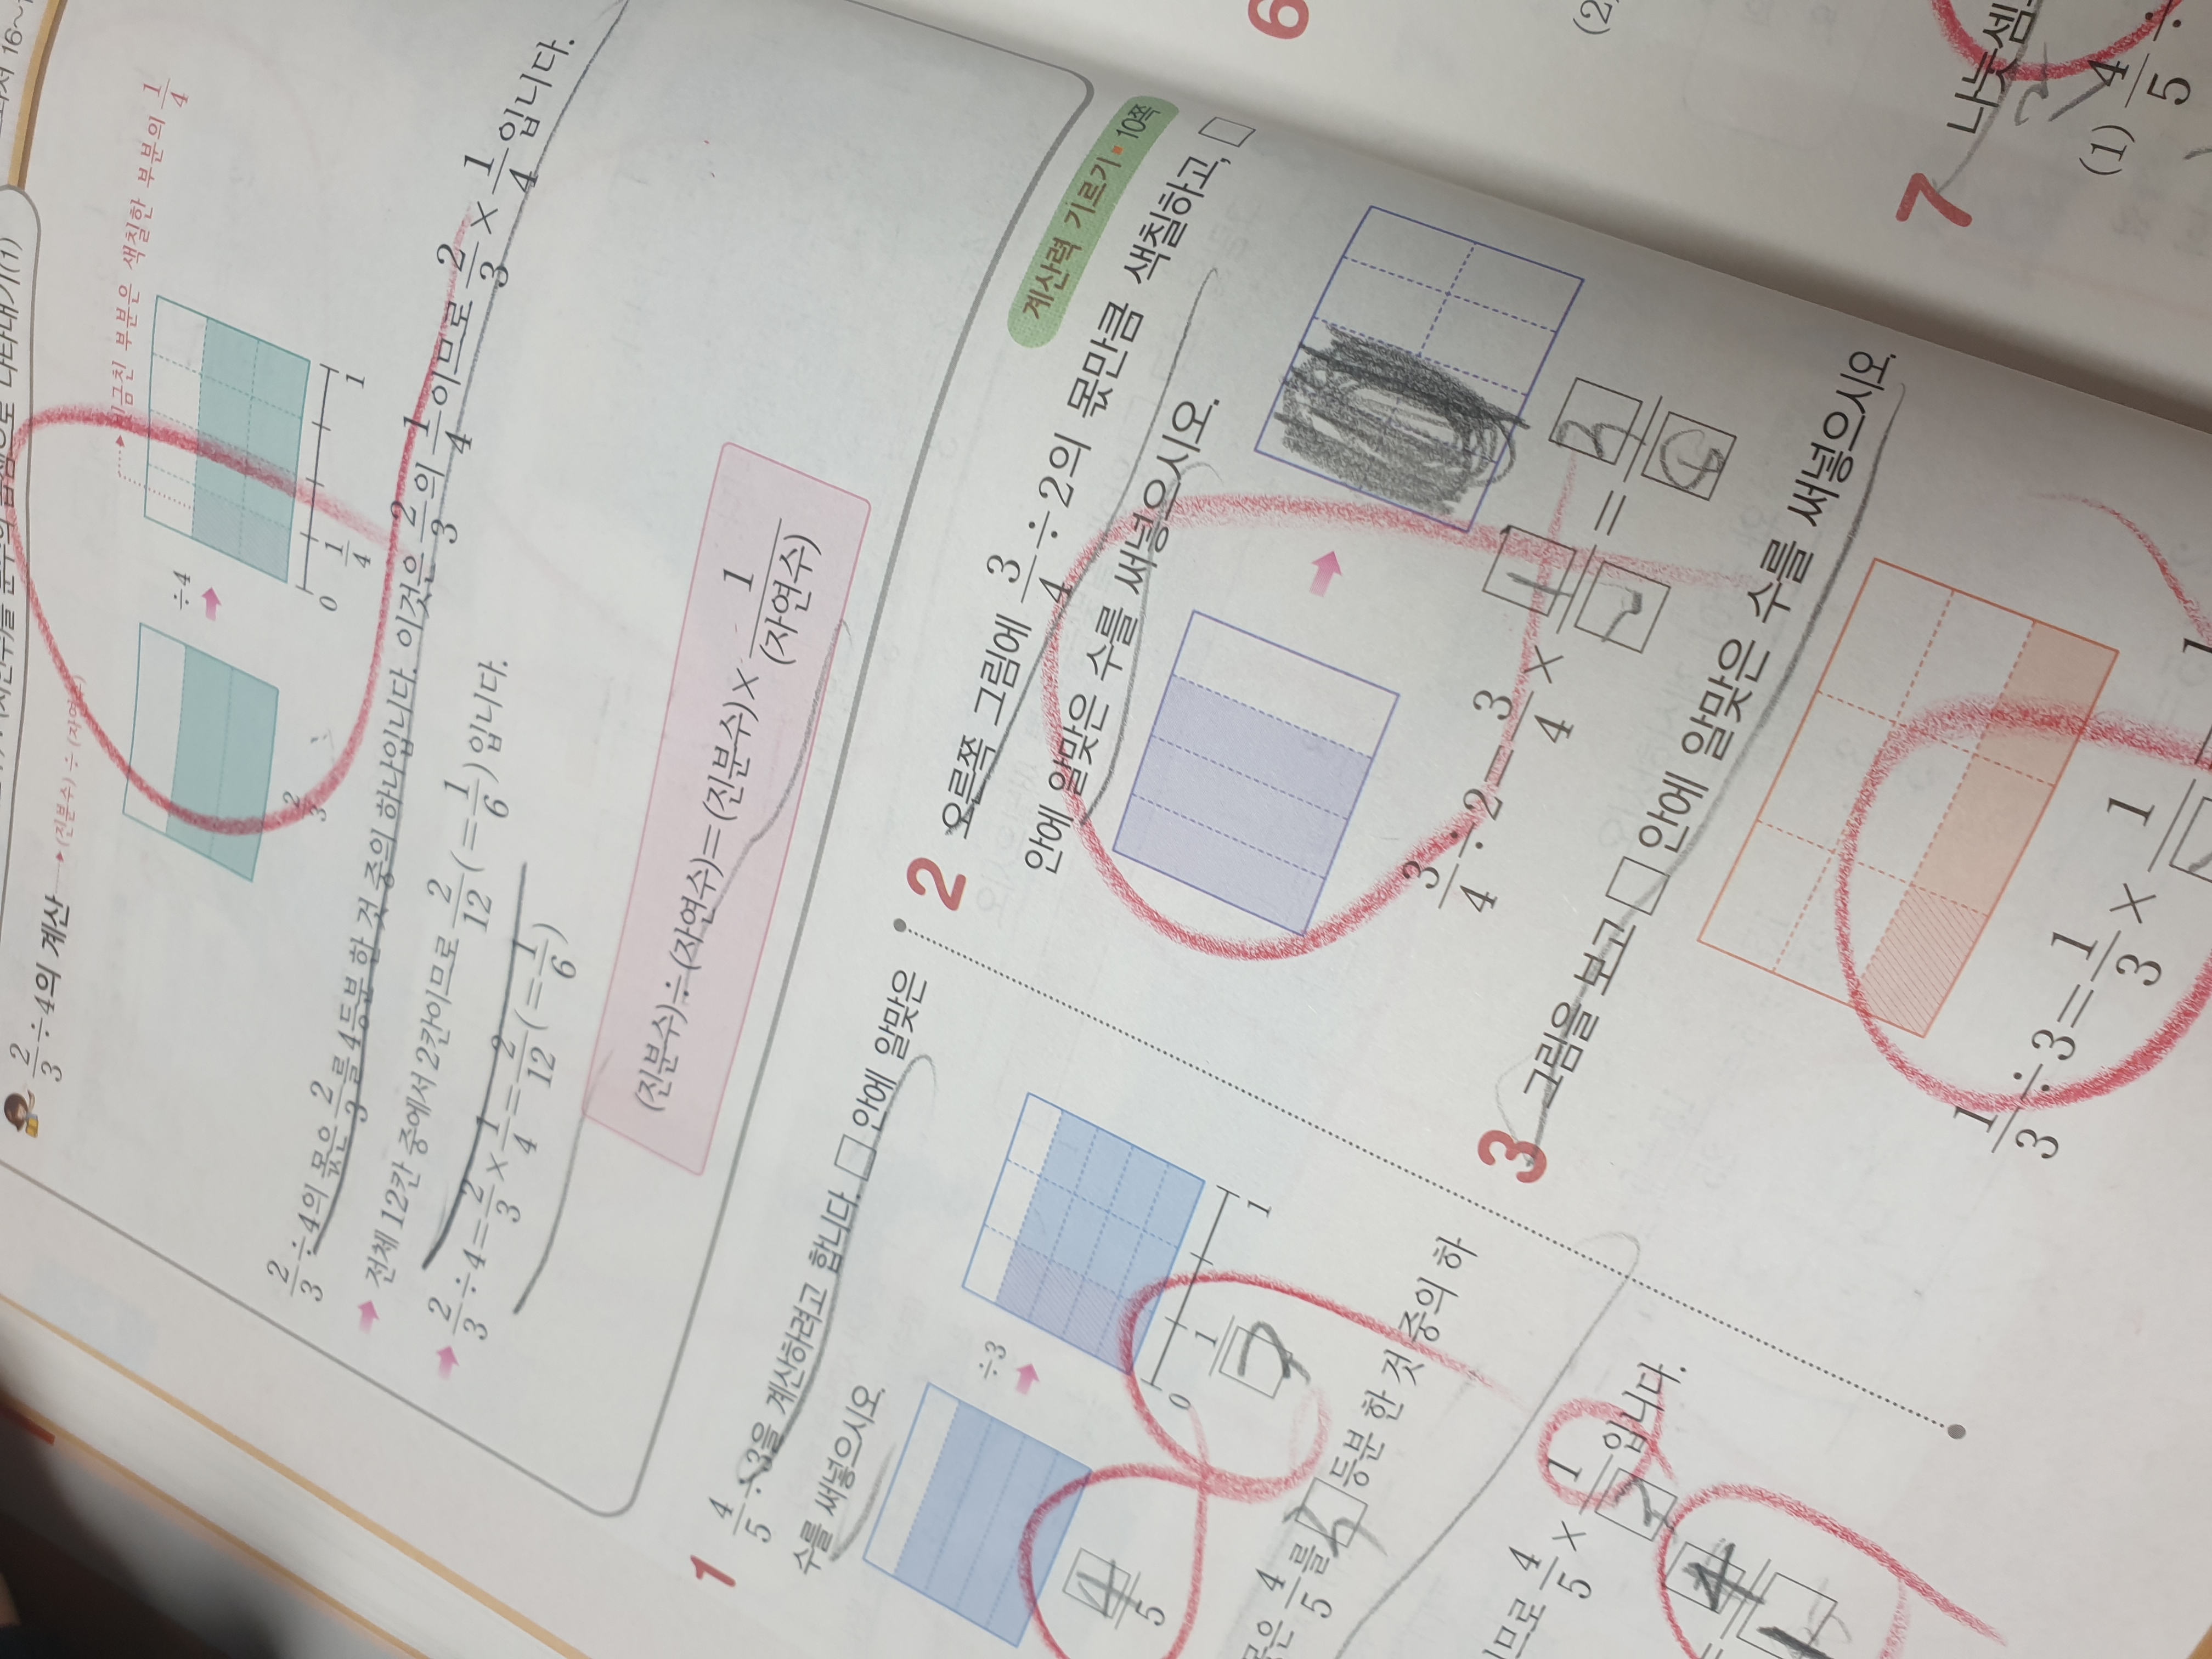 2/3÷4의 계산 → (진분수)÷(자연수)
÷4
빗금친 부분은 색칠한 부분의 1/4
2/3
0 1/4 1
2/3÷4의 몫은 2/3를 4등분 한 것 중의 하나입니다. 이것은 2/3의 1/4이므로 2/3×1/4입니다.
전체 12칸 중에서 2칸이므로 2/12(=1/6)입니다.
2/3÷4=2/3×1/4=2/12(=1/6)
(진분수)÷(자연수)=(진분수)×1/(자연수)
계산력 기르기 10쪽
1 4/5÷3을 계산하려고 합니다. □ 안에 알맞은
수를 써넣으시오.
÷3
4/5
0 1/3 1
몫은 4/5를 3 등분 한 것 중의 하
이므로 4/5×1/3입니다.
=4/15
2 오른쪽 그림에 3/4÷2의 몫만큼 색칠하고, □
안에 알맞은 수를 써넣으시오.
3/4÷2=3/4×1/2=3/
3 그림을 보고 □ 안에 알맞은 수를 써넣으시오.
1/3÷3=1/3×1/
6
(2)
7 나눗셈
(1) 4/5÷